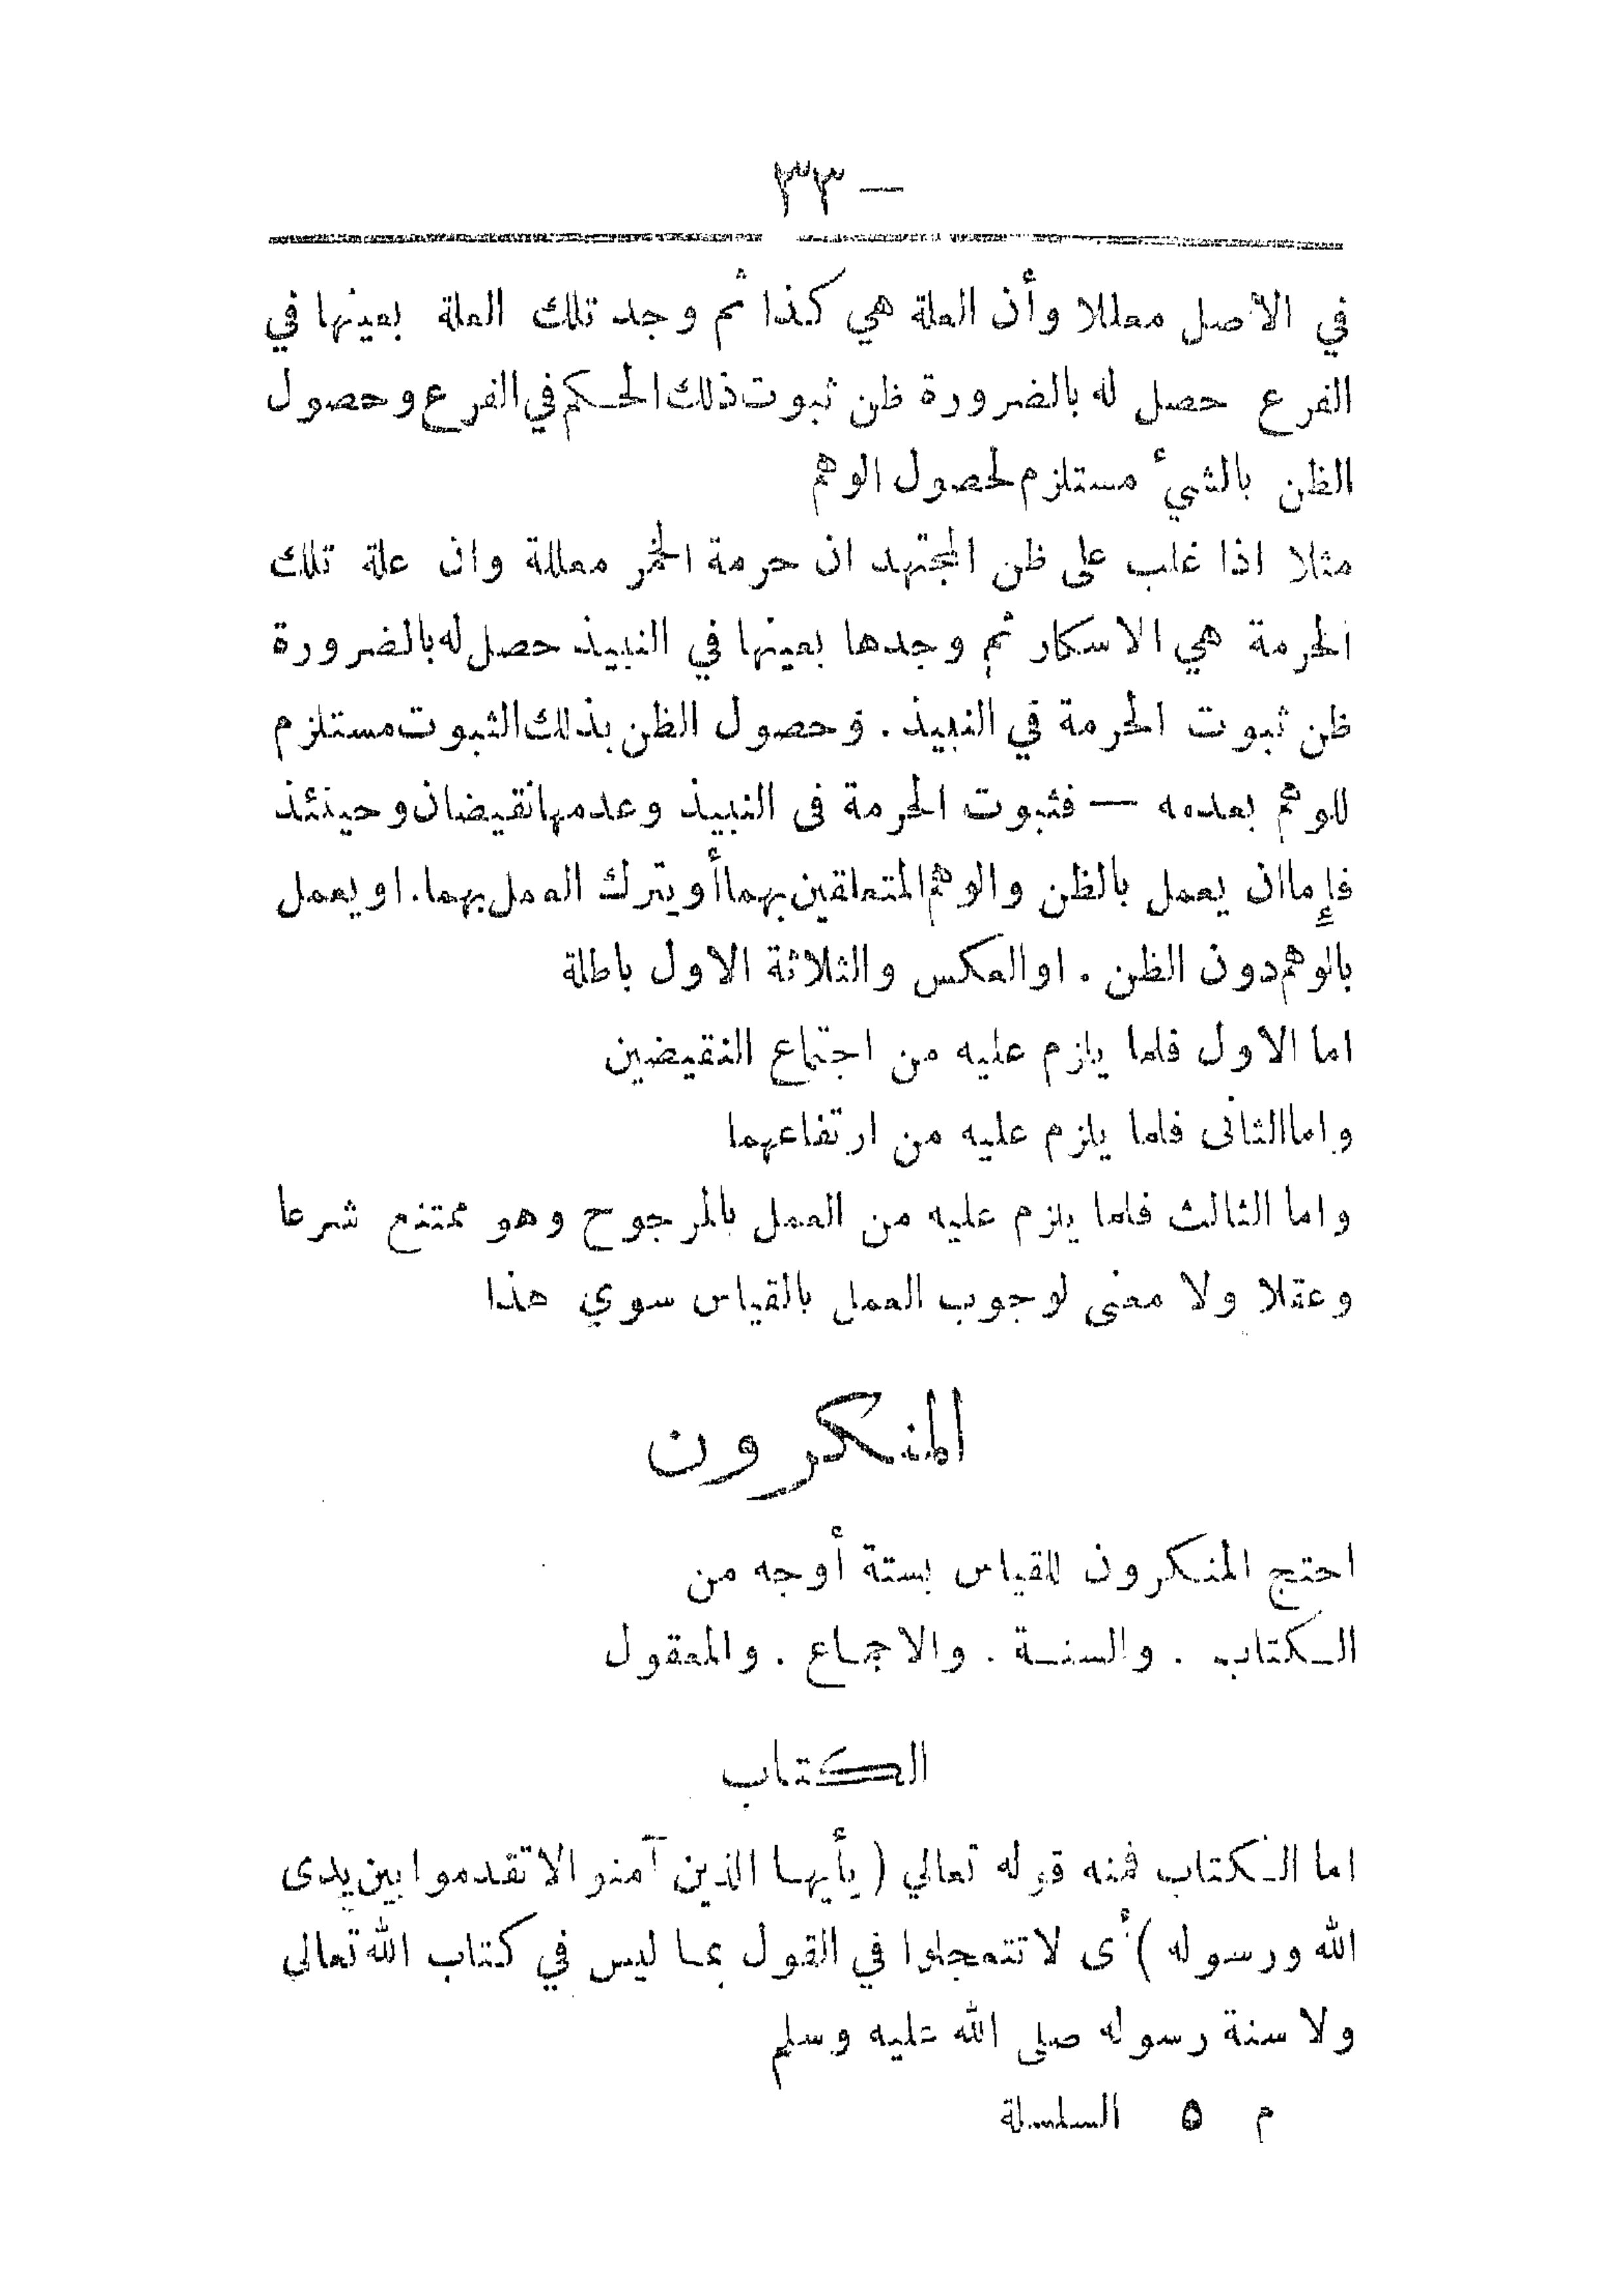 — ٣٣
في الأصل معللا وأن العلة هي كذا ثم وجد تلك العلة بعينها في
الفرع حصل له بالضرورة ظن ثبوت ذلك الحكم في الفرع وحصول
الظن بالشيء مستلزم لحصول الوهم
مثلا اذا غلب على ظن المجتهد ان حرمة الخمر معللة وان علة تلك
الحرمة هي الاسكار ثم وجدها بعينها في النبيذ حصل له بالضرورة
ظن ثبوت الحرمة في النبيذ . وحصول الظن بذلك الثبوت مستلزم
للوهم بعدمه — فثبوت الحرمة فى النبيذ وعدمها نقيضان وحينئذ
فإما ان يعمل بالظن والوهم المتعلقين بهما أو يترك العمل بهما . او يعمل
بالوهم دون الظن . او العكس والثلاثة الاول باطلة
اما الاول فلما يلزم عليه من اجتماع النقيضين
واما الثانى فلما يلزم عليه من ارتفاعهما
واما الثالث فلما يلزم عليه من العمل بالمرجوح وهو ممتنع شرعا
وعقلا ولا معنى لوجوب العمل بالقياس سوي هذا
المنكرون
احتج المنكرون للقياس بستة أوجه من
الكتاب . والسنة . والاجماع . والمعقول
الكتاب
اما الكتاب فمنه قوله تعالي ( يأيها الذين آمنو الا تقدموا بين يدى
الله ورسوله ) أى لا تتعجلوا في القول بما ليس في كتاب الله تعالى
ولا سنة رسوله صلى الله عليه وسلم
م ٥ السلسلة